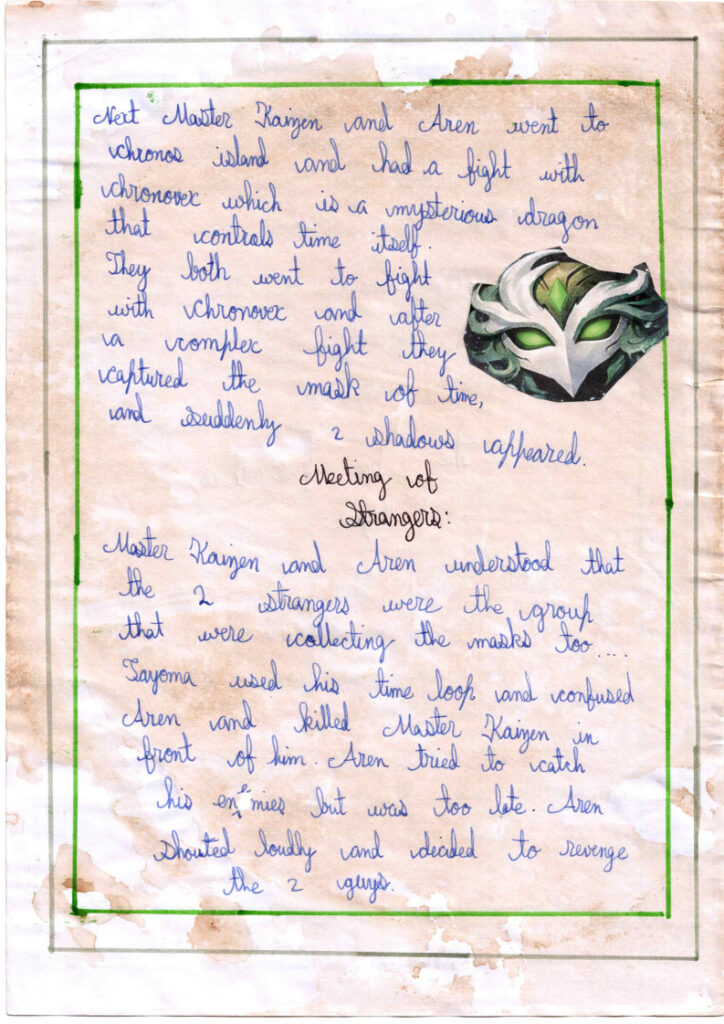 Next Master Kaizen and Aren went to
chronos island and had a fight with
chronovex which is a mysterious dragon
that controls time itself.
They both went to fight
with chronovex and after
a complex fight they
captured the mask of time,
and suddenly 2 shadows appeared.
Meeting of
Strangers:
Master Kaizen and Aren understood that
the 2 strangers were the group
that were collecting the masks too....
Tayoma used his time loop and confused
Aren and killed Master Kaizen in
front of him. Aren tried to catch
his enemies but was too late. Aren
shouted loudly and decided to revenge
the 2 guys.